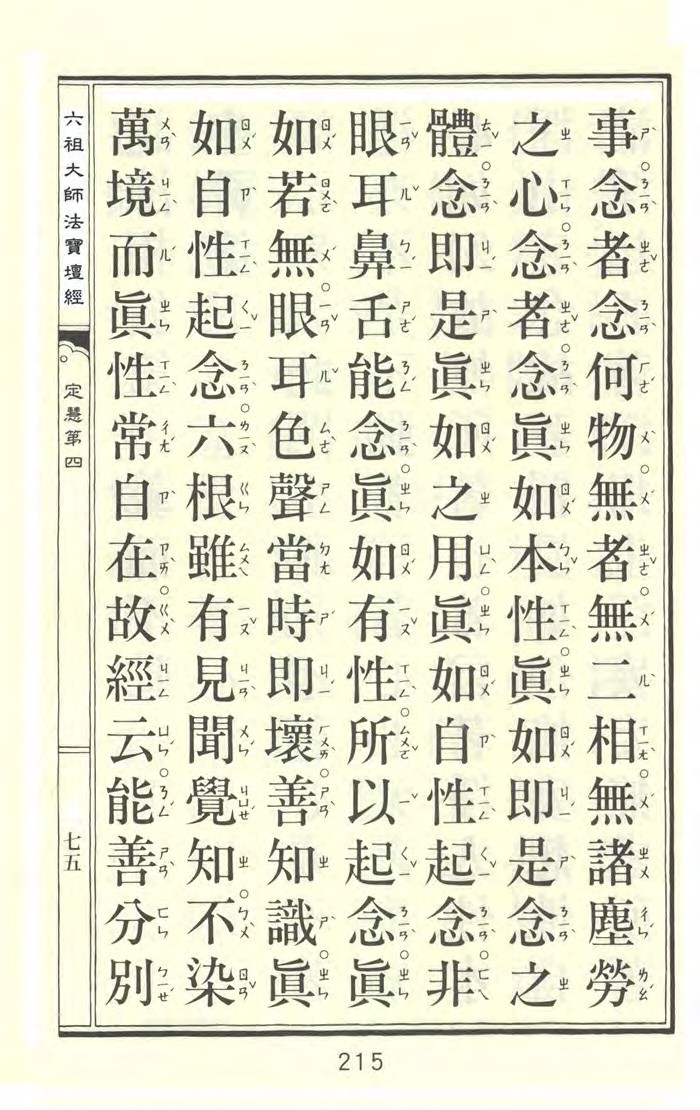 事。念者念何物。無者無二相。無諸塵勞
之心。念者。念真如本性。真如即是念之
體。念即是眞如之用。眞如自性起念。非
眼耳鼻舌能念。眞如有性。所以起念。眞
如若無。眼耳色聲當時即壞。善知識。眞
如自性起念。六根雖有見聞覺知。不染
萬境。而眞性常自在。故經云。能善分別
六祖大師法寶壇經
定慧第四
七五
215